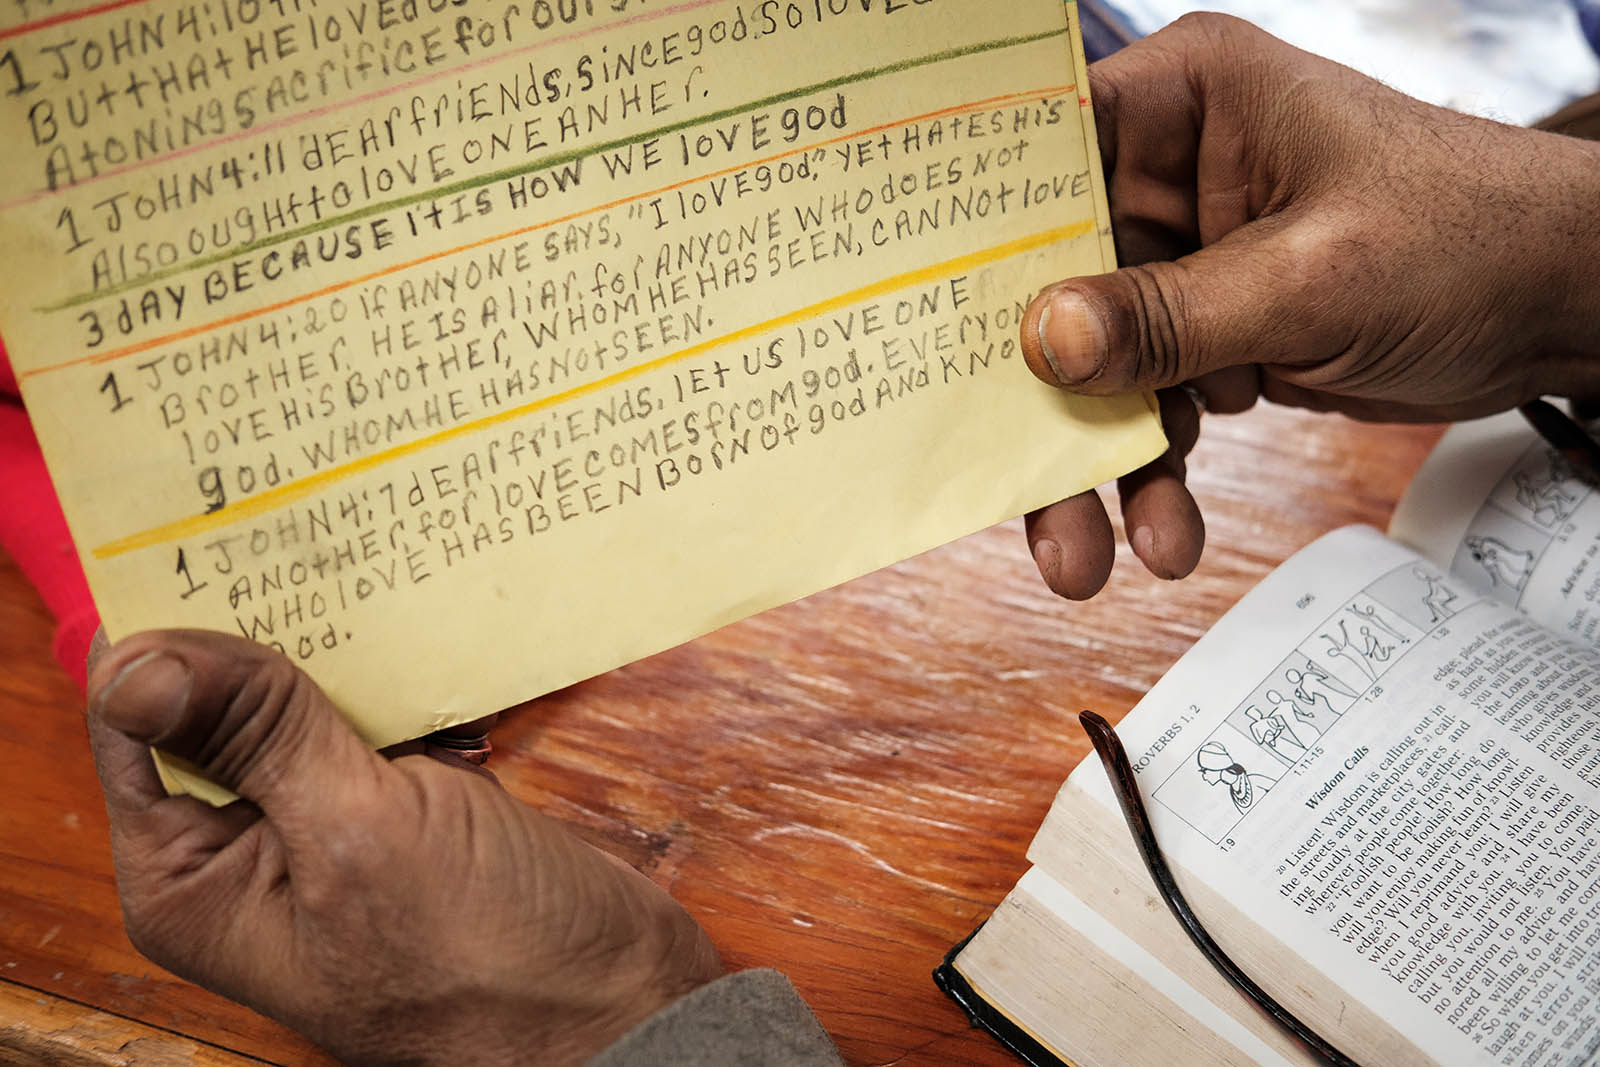 1 JOHN 4:10 
BUt tHAt HE lOVEd us
AtONiNg SAcrificE for Our
1 JOHN 4:11 dEAr friENds, SiNCE god. SO lOVEd
AlSO OugHt tO lOVE ONE AN HEr.
3 dAY BECAUSE It IS HOW WE lOVE god
1 JOHN 4:20 if ANYONE SAYS, "I lOVE god," YEt HAtES HiS
BrOtHEr. HE IS A liAr. for ANYONE WHO dOES NOt
lOVE HiS BrOtHEr, WHOM HE HAS SEEN, CANNOt lOVE
god. WHOM HE HAS NOt SEEN.
1 JOHN 4:7 dEAr friENds, lEt US lOVE ONE
ANOtHEr, for lOVE COMES frOM god. EVErYON
WHO lOVE HAS BEEN BOrN Of god ANd KNO
god.
696
ROVERBS 1, 2
1.9
1.11-15
1.28
1.33
Wisdom Calls
20 Listen! Wisdom is calling out in
the streets and marketplaces, 21 call-
ing loudly at the city gates and
wherever people come together:
22 "Foolish people! How long do
you want to be foolish? How long
will you enjoy making fun of knowl-
edge? Will you never learn? 23 Listen
when I reprimand you; I will give
you good advice and share my
knowledge with you. 24 I have been
calling you, inviting you to come,
but you would not listen. You paid
no attention to me. 25 You have ig-
nored all my advice and have
been willing to let me corr
26 So when you get into tro
laugh at you. I will ma
when terror strik
omes on you li
ce winds
edge, plead for
as hard as you
some hidden
you will know
the LORD and
learning about God.
who gives wisdom
knowledge and
provides hel
righteous,
those
gua
3.13
Advice to